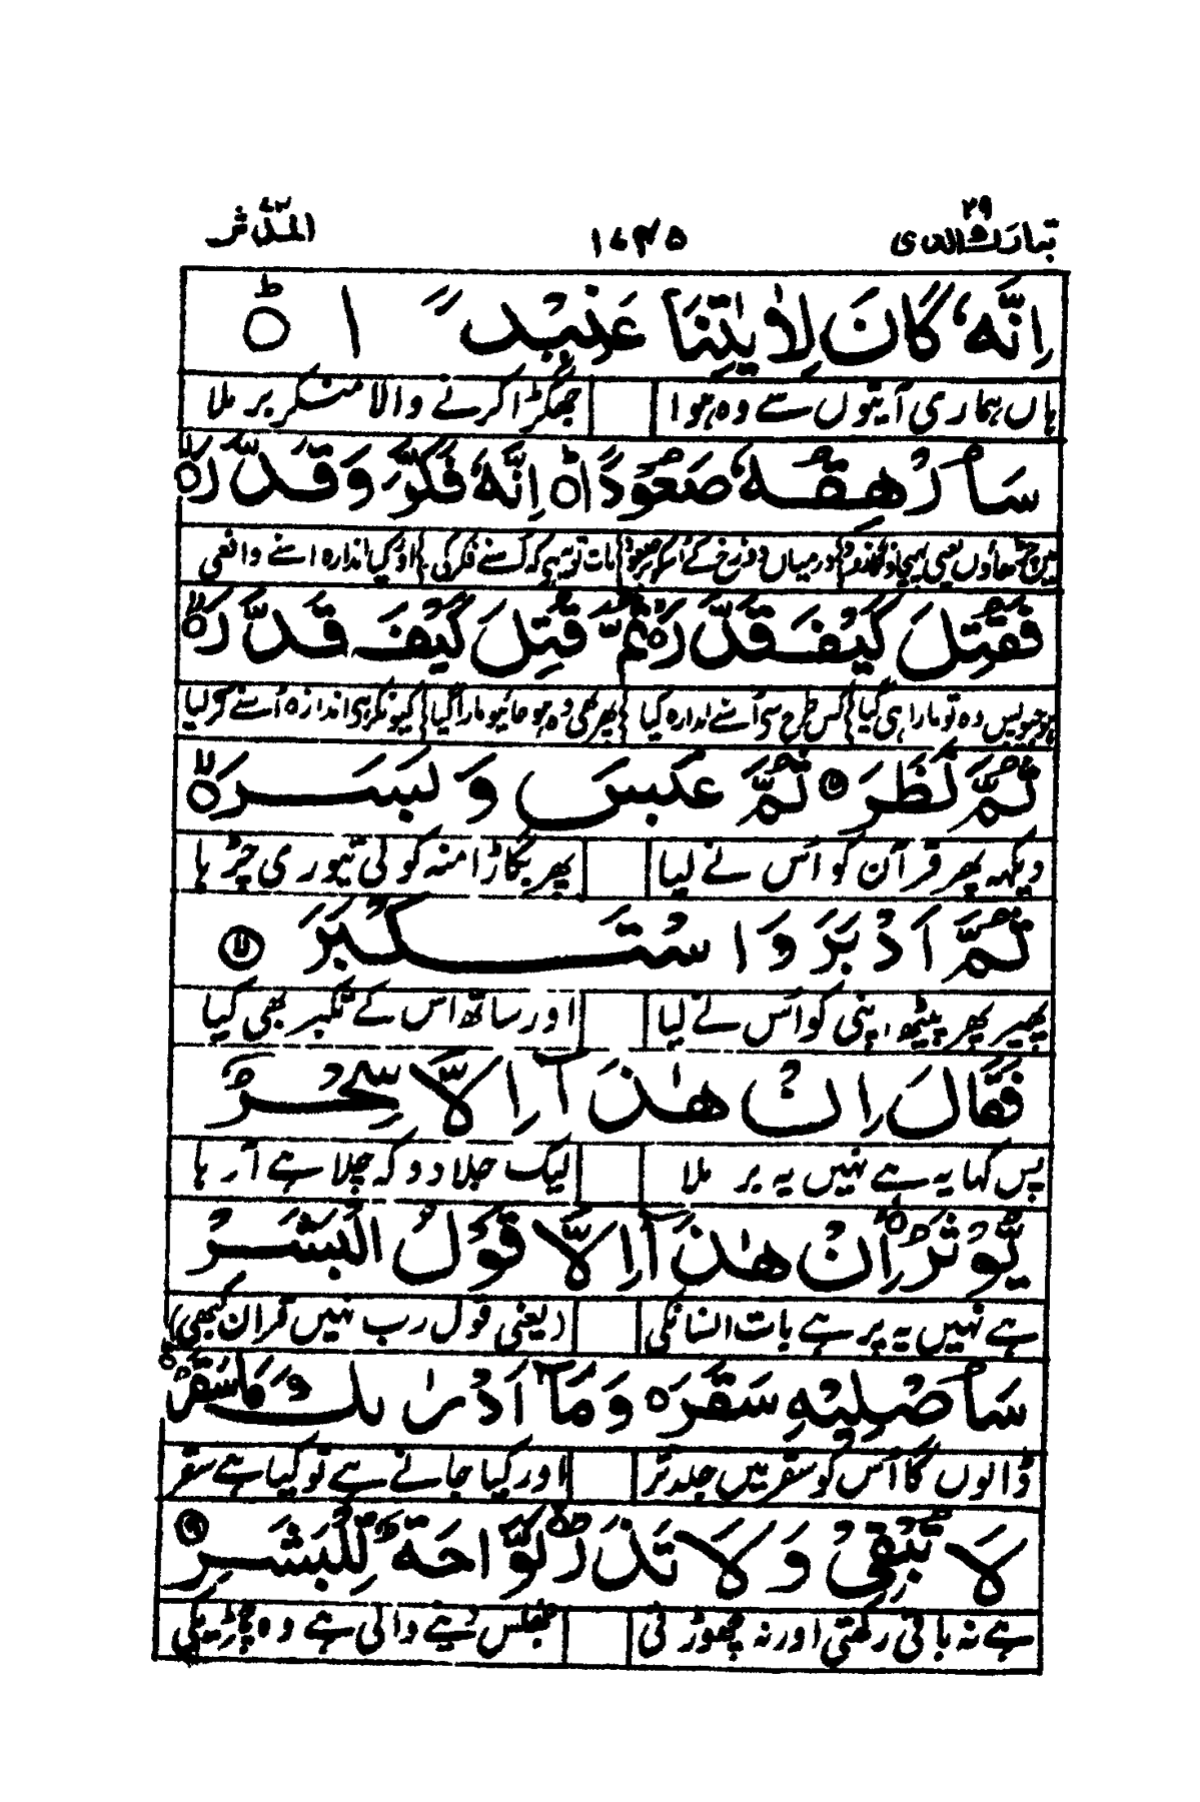 تبارك الذى ٢٩ ١٤٣٥ المدثر ٧٤
اِنَّهٗ كَانَ لِاٰيٰتِنَا عَنِيْدًا ؕ
ہاں ہماری آیتوں سے وہ ہوا جھگڑا کرنے والا منکر بر ملا
سَاُرْهِقُهٗ صَعُوْدًا ؕ اِنَّهٗ فَكَّرَ وَقَدَّرَ ۙ
درمیاں دوزخ کے بات تو یہ ہے کہ اسنے فکر کی اور کیا اندازہ اسنے واقعی
فَقُتِلَ كَيْفَ قَدَّرَ ۙ ثُمَّ قُتِلَ كَيْفَ قَدَّرَ ۙ
وہ تو مارا ہی گیا کس طرح سے اُسنے اندازہ کیا پھر بھی وہ ہو جائیو مارا گیا کیونکر ہی اندازہ اُسنے کر لیا
ثُمَّ نَظَرَ ۙ ثُمَّ عَبَسَ وَ بَسَرَ ۙ
دیکھ پھر قرآن کو اُس نے لیا پھر بگاڑا منہ کو لی تیوری چڑہا
ثُمَّ اَدْبَرَ وَا سْتَكْبَرَ ۙ
پھیر پھر پیٹھ اپنی کو اُس نے لیا اور ساتھ اس کے تکبر بھی کیا
فَقَالَ اِنْ هٰذَآ اِلَّا سِحْرٌ
پس کہا یہ ہے نہیں یہ بر ملا لیک جلادو کہ چلا ہے آرہا
يُّؤْثَرُ ۙ اِنْ هٰذَآ اِلَّا قَوْلُ الْبَشَرِ
ہے نہیں یہ پر ہے بات انسانکی (یعنی قول رب نہیں قرآن بھی)
سَاُصْلِيْهِ سَقَرَ ٥ وَمَآ اَدْرٰىكَ مَا سَقَرُ ٥
ڈالوں گا اُس کو سقر میں جلد تر اور کیا جانے ہے تو کیا ہے سقر
لَا تُبْقِيْ وَلَا تَذَرُ ۚ لَوَّاحَةٌ لِّلْبَشَرِ
ہے نہ باقی رکھتی اور نہ چھوڑتی جھلس دینے والی ہے وہ چمڑیکی